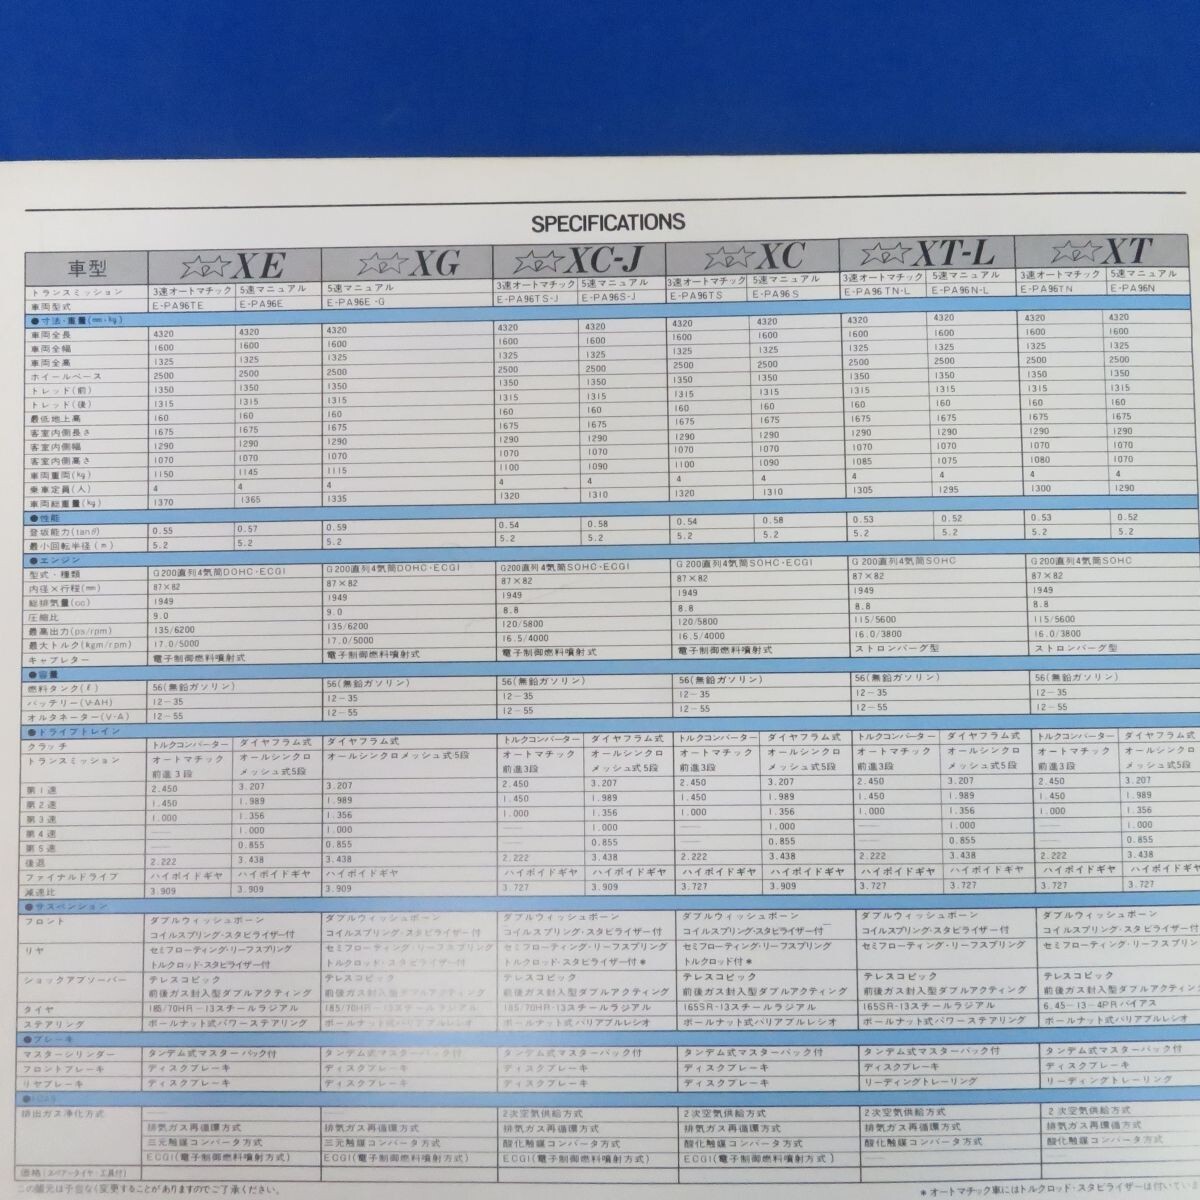 SPECIFICATIONS
車型 XE XG XC-J XC XT-L XT
トランスミッション 3速オートマチック 5速マニュアル 5速マニュアル 3速オートマチック 5速マニュアル 3速オートマチック 5速マニュアル 3速オートマチック 5速マニュアル 3速オートマチック 5速マニュアル
車両型式 E-PA96TE E-PA96E E-PA96E-G E-PA96TS-J E-PA96S-J E-PA96TS E-PA96S E-PA96TN-L E-PA96N-L E-PA96TN E-PA96N
●寸法・重量(mm・kg)
車両全長 4320 4320 4320 4320 4320 4320 4320 4320 4320 4320 4320
車両全幅 1600 1600 1600 1600 1600 1600 1600 1600 1600 1600 1600
車両全高 1325 1325 1325 1325 1325 1325 1325 1325 1325 1325 1325
ホイールベース 2500 2500 2500 2500 2500 2500 2500 2500 2500 2500 2500
トレッド(前) 1350 1350 1350 1350 1350 1350 1350 1350 1350 1350 1350
トレッド(後) 1315 1315 1315 1315 1315 1315 1315 1315 1315 1315 1315
最低地上高 160 160 160 160 160 160 160 160 160 160 160
客室内側長さ 1675 1675 1675 1675 1675 1675 1675 1675 1675 1675 1675
客室内側幅 1290 1290 1290 1290 1290 1290 1290 1290 1290 1290 1290
客室内側高さ 1070 1070 1070 1070 1070 1070 1070 1070 1070 1070 1070
車両重両(kg) 1150 1145 1115 1100 1090 1100 1090 1085 1075 1080 1070
乗車定員(人) 4 4 4 4 4 4 4 4 4 4 4
車両総重量(kg) 1370 1365 1335 1320 1310 1320 1310 1305 1295 1300 1290
●性能
登坂能力(tanθ) 0.55 0.57 0.59 0.54 0.58 0.54 0.58 0.53 0.52 0.53 0.52
最小回転半径(m) 5.2 5.2 5.2 5.2 5.2 5.2 5.2 5.2 5.2 5.2 5.2
●エンジン
型式・種類 G200直列4気筒DOHC・ECGI G200直列4気筒DOHC・ECGI G200直列4気筒SOHC・ECGI G200直列4気筒SOHC・ECGI G200直列4気筒SOHC G200直列4気筒SOHC
内径×行程(mm) 87×82 87×82 87×82 87×82 87×82 87×82
総排気量(cc) 1949 1949 1949 1949 1949 1949
圧縮比 9.0 9.0 8.8 8.8 8.8 8.8
最高出力(ps/rpm) 135/6200 135/6200 120/5800 120/5800 115/5600 115/5600
最大トルク(kgm/rpm) 17.0/5000 17.0/5000 16.5/4000 16.5/4000 16.0/3800 16.0/3800
キャブレター 電子制御燃料噴射式 電子制御燃料噴射式 電子制御燃料噴射式 電子制御燃料噴射式 ストロンバーグ型 ストロンバーグ型
●容量
燃料タンク(ℓ) 56(無鉛ガソリン) 56(無鉛ガソリン) 56(無鉛ガソリン) 56(無鉛ガソリン) 56(無鉛ガソリン) 56(無鉛ガソリン)
バッテリー(V-AH) 12-35 12-35 12-35 12-35 12-35 12-35
オルタネーター(V-A) 12-55 12-55 12-55 12-55 12-55 12-55
●ドライブトレイン
クラッチ トルクコンバーター ダイヤフラム式 ダイヤフラム式 トルクコンバーター ダイヤフラム式 トルクコンバーター ダイヤフラム式 トルクコンバーター ダイヤフラム式 トルクコンバーター ダイヤフラム式
トランスミッション オートマチック オールシンクロ オールシンクロメッシュ式5段 オートマチック オールシンクロ オートマチック オールシンクロ オートマチック オールシンクロ オートマチック オールシンクロ
前進3段 メッシュ式5段 前進3段 メッシュ式5段 前進3段 メッシュ式5段 前進3段 メッシュ式5段 前進3段 メッシュ式5段
第1速 2.450 3.207 3.207 2.450 3.207 2.450 3.207 2.450 3.207 2.450 3.207
第2速 1.450 1.989 1.989 1.450 1.989 1.450 1.989 1.450 1.989 1.450 1.989
第3速 1.000 1.356 1.356 1.000 1.356 1.000 1.356 1.000 1.356 1.000 1.356
第4速 — 1.000 1.000 — 1.000 — 1.000 — 1.000 — 1.000
第5速 — 0.855 0.855 — 0.855 — 0.855 — 0.855 — 0.855
後退 2.222 3.438 3.438 2.222 3.438 2.222 3.438 2.222 3.438 2.222 3.438
ファイナルドライブ ハイポイドギヤ ハイポイドギヤ ハイポイドギヤ ハイポイドギヤ ハイポイドギヤ ハイポイドギヤ ハイポイドギヤ ハイポイドギヤ ハイポイドギヤ ハイポイドギヤ ハイポイドギヤ
減速比 3.909 3.909 3.909 3.727 3.909 3.727 3.909 3.727 3.727 3.727 3.727
●サスペンション
フロント ダブルウィッシュボーン ダブルウィッシュボーン ダブルウィッシュボーン ダブルウィッシュボーン ダブルウィッシュボーン ダブルウィッシュボーン
コイルスプリング・スタビライザー付 コイルスプリング・スタビライザー付 コイルスプリング・スタビライザー付 コイルスプリング・スタビライザー付 コイルスプリング・スタビライザー付 コイルスプリング・スタビライザー付
リヤ セミフローティング・リーフスプリング セミフローティング・リーフスプリング セミフローティング・リーフスプリング セミフローティング・リーフスプリング セミフローティング・リーフスプリング セミフローティング・リーフスプリン
トルクロッド・スタビライザー付 トルクロッド・スタビライザー付 トルクロッド・スタビライザー付* トルクロッド付*
ショックアブソーバー テレスコピック テレスコピック テレスコピック テレスコピック テレスコピック テレスコピック
前後ガス封入型ダブルアクティング 前後ガス封入型ダブルアクティング 前後ガス封入型ダブルアクティング 前後ガス封入型ダブルアクティング 前後ガス封入型ダブルアクティング 前後ガス封入型ダブルアクティング
タイヤ 185/70HR-13スチールラジアル 185/70HR-13スチールラジアル 185/70HR-13スチールラジアル 165SR-13スチールラジアル 165SR-13スチールラジアル 6.45-13-4PRバイアス
ステアリング ボールナット式パワーステアリング ボールナット式バリアブルレシオ ボールナット式バリアブルレシオ ボールナット式バリアブルレシオ ボールナット式パワーステアリング ボールナット式バリアブルレシオ
●ブレーキ
マスターシリンダー タンデム式マスターバック付 タンデム式マスターバック付 タンデム式マスターバック付 タンデム式マスターバック付 タンデム式マスターバック付 タンデム式マスターバック付
フロントブレーキ ディスクブレーキ ディスクブレーキ ディスクブレーキ ディスクブレーキ ディスクブレーキ ディスクブレーキ
リヤブレーキ ディスクブレーキ ディスクブレーキ ディスクブレーキ ディスクブレーキ リーディングトレーリング リーディングトレーリング
●I・CAS
排出ガス浄化方式 — — 2次空気供給方式 2次空気供給方式 2次空気供給方式 2次空気供給方式
排気ガス再循環方式 排気ガス再循環方式 排気ガス再循環方式 排気ガス再循環方式 排気ガス再循環方式 排気ガス再循環方式
三元触媒コンバータ方式 三元触媒コンバータ方式 酸化触媒コンバータ方式 酸化触媒コンバータ方式 酸化触媒コンバータ方式 酸化触媒コンバータ方式
ECGI(電子制御燃料噴射方式) ECGI(電子制御燃料噴射方式) ECGI(電子制御燃料噴射方式) ECGI(電子制御燃料噴射方式) — —
価格(スペアータイヤ・工具付)
この諸元は予告なく変更することがありますのでご了承ください。
*オートマチック車にはトルクロッド・スタビライザーは付いていま